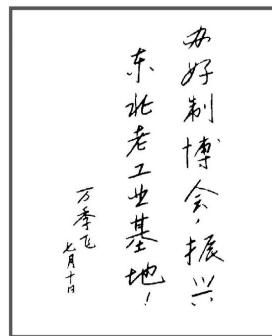 办好制博会，振兴
东北老工业基地！
万季飞
七月十日